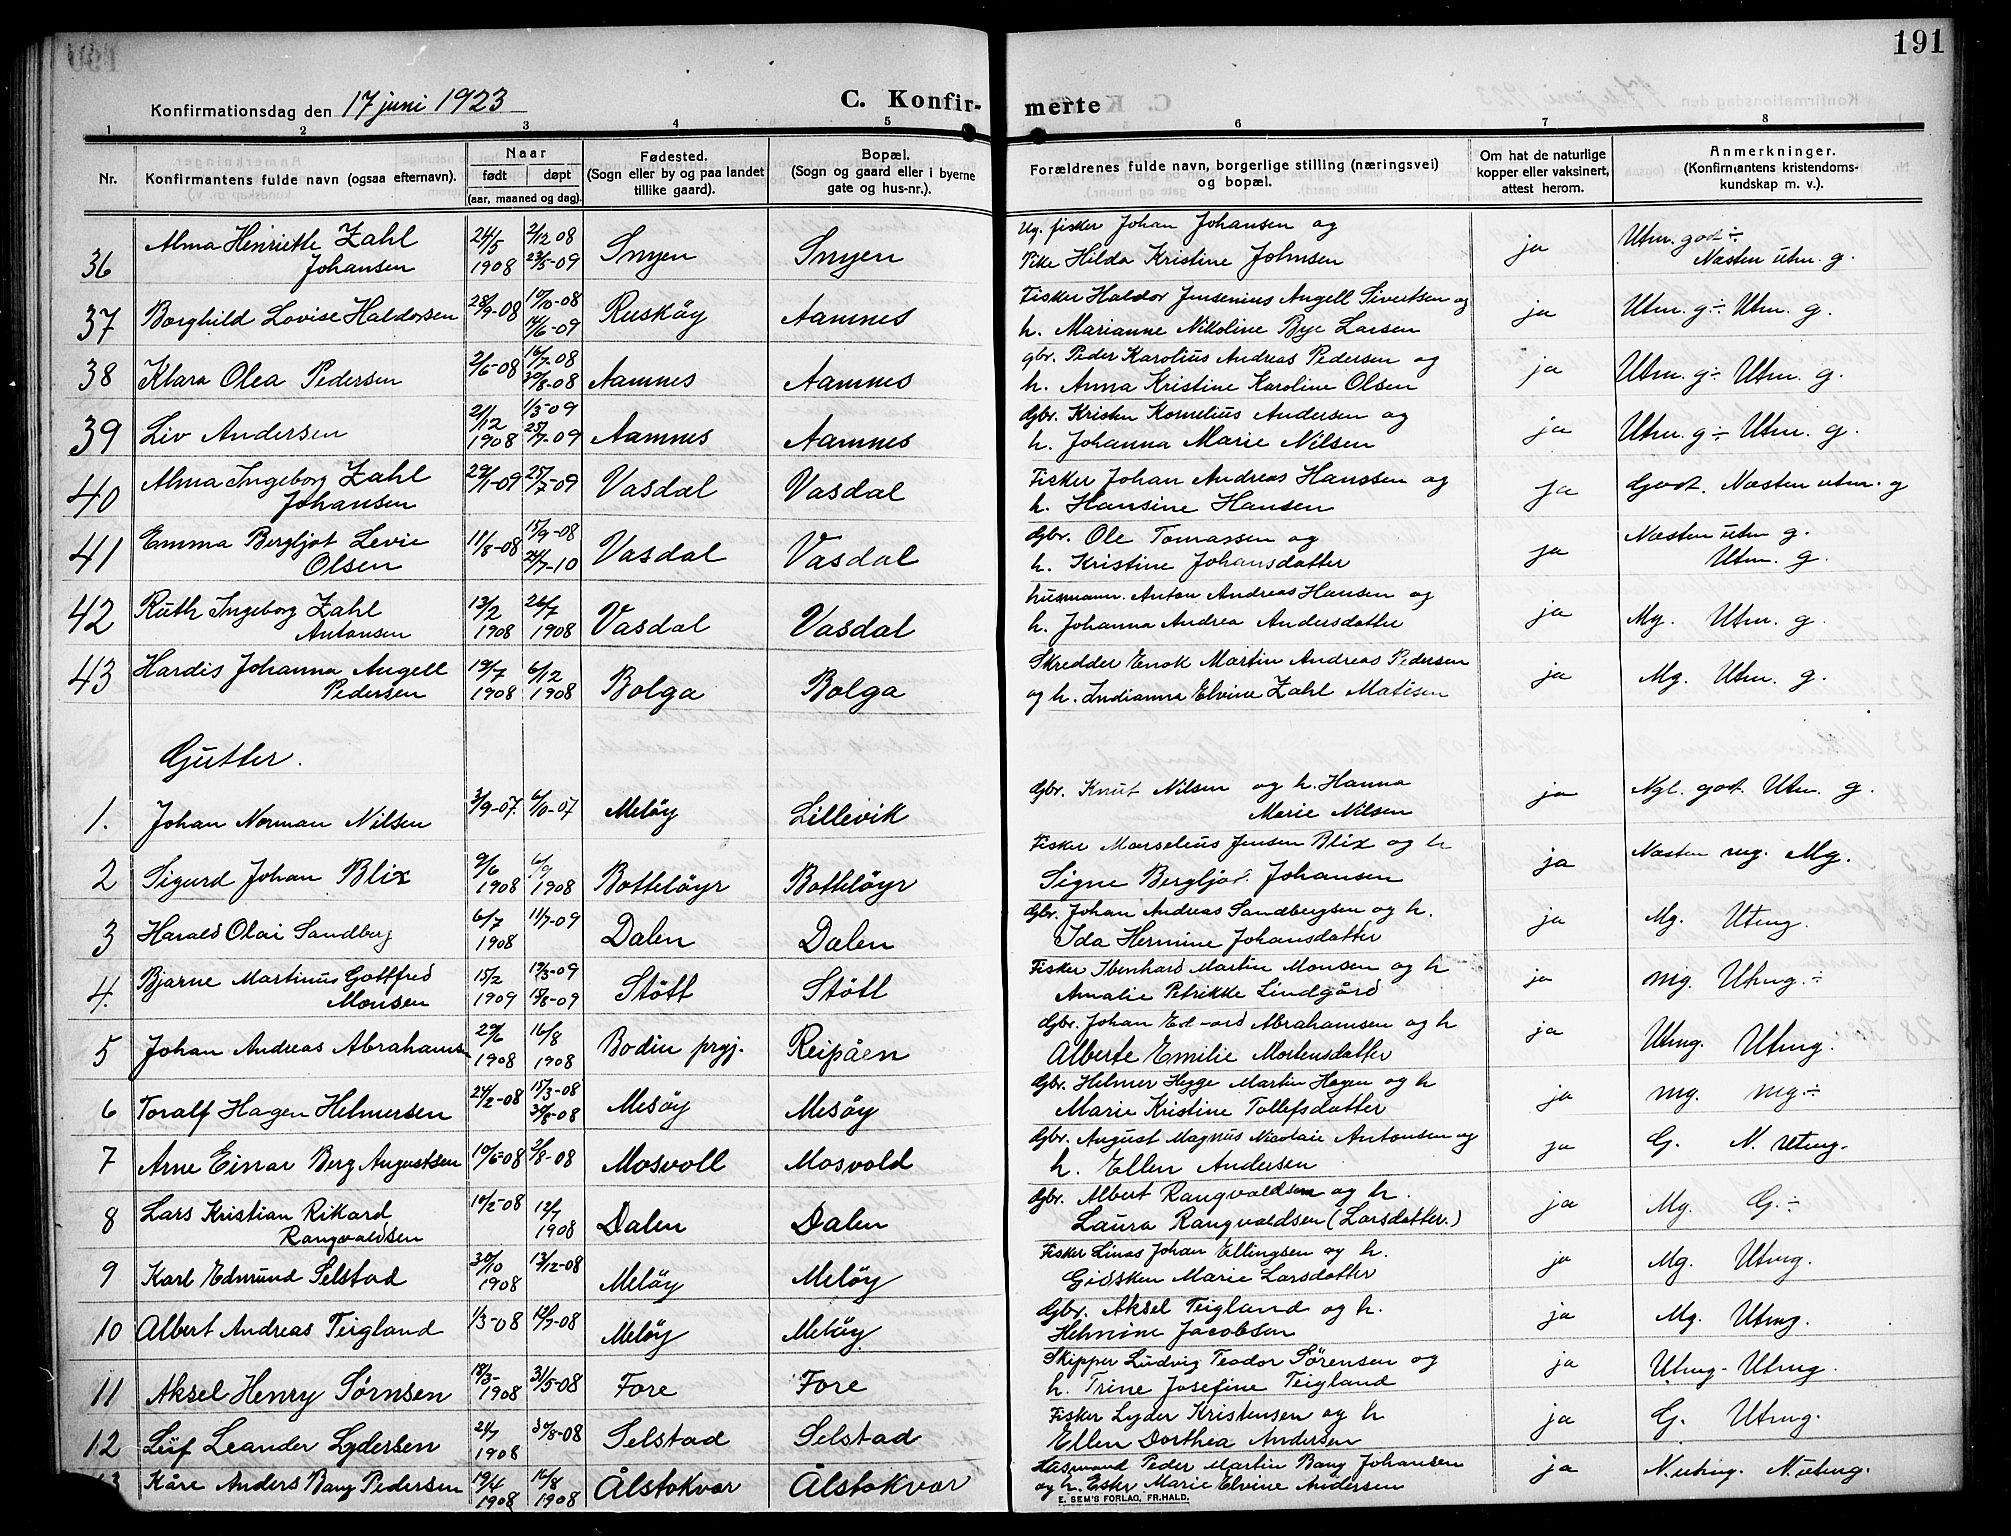 191
Konfirmationsdag den 17 juni 1923
C. Konfir- merte
1 2 3 4 5 6 7 8
Nr.
Konfirmantens fulde navn (ogsaa efternavn).
Naar
født døpt
(aar, maaned og dag).
Fødested.
(Sogn eller by og paa landet
tillike gaard).
Bopæl.
(Sogn og gaard eller i byerne
gate og hus-nr.).
Forældrenes fulde navn, borgerlige stilling (næringsvei)
og bopæl.
Om hat de naturlige
kopper eller vaksinert,
attest herom.
Anmerkninger.
(Konfirmantens kristendoms-
kundskap m. v.).
36 Alma Henriette Zahl 24/5 2/12 08 Snyen Snyen Ug. fisker Johan Johansen og ja Utm. god ÷
Johansen 1908 23/5-09 Pike Hilda Kristine Johnsen Næsten utm. g.
37 Borghild Lovise Haldorsen 28/9-08 10/10-08 Rusköy Aamnes Fisker Haldor Jensenius Angell Sivertsen og ja Utm. g ÷ Utm. g.
14/6-09 h. Marianne Nikoline Bye Larsen
38 Klara Olea Pedersen 2/6-08 16/7-08 Aamnes Aamnes gbr. Peder Karolius Andreas Pedersen og ja Utm. g ÷ Utm. g.
30/8-08 h. Anna Kristine Karoline Olsen
39 Liv Andersen 21/12 1/3-09 Aamnes Aamnes Gbr. Kristen Kornelius Andersen og ja Utm. g ÷ Utm. g.
1908 25/7-09 h. Johanna Marie Nilsen
40 Alma Ingeborg Zahl 29/1-09 25/7-09 Vasdal Vasdal Fisker Johan Andreas Hanssen og ja Godt. Næsten utm. g
Johansen h. Hansine Hansen
41 Emma Bergljot Levie 19/8-08 15/9-08 Vasdal Vasdal Gbr. Ole Tomassen og ja Næsten utm g.
Olsen 24/7-10 h. Kristine Johansdatter Utm. g.
42 Ruth Ingeborg Zahl 13/2 26/7 Vasdal Vasdal husmann. Anton Andreas Hansen og ja Mg. Utm. g.
Antonsen 1908 1908 h. Johanna Andrea Andersdatter
43 Hardis Johanna Angell 19/7 6/12 Bolga Bolga Skredder Enok Martin Andreas Pedersen ja Mg. Utm. g.
Pedersen 1908 1908 og h. Indianna Elvine Zahl Matisen
Gutter.
1. Johan Norman Nilsen 3/9-07. 6/10-07 Melöy Lillevik Gbr. Knut Nilsen og h. Hanna ja Ngl. godt. Utm. g.
Marie Nilsen
2 Sigurd Johan Blix 9/6 6/9 Bottelöyr Bottelöyr Fisker Marselius Jensen Blix og h ja Næsten mg. Mg.
1908 1908 Signe Bergljot. Johansen
3 Harald Olai Sandberg 6/7 11/7-09 Dalen Dalen Gbr. Johan Andreas Sandbergsen og h. ja Mg. Utmg.
1908 Ida Hermine Johansdatter
4. Bjarne Martinus Gottfred 15/2 19/3-09 Stött Stött Fisker Ibenhard Martin Monsen og h ja mg. Utmg. ÷
Monsen 1909 15/8-09 Amalie Petrikke Lindgård
5 Johan Andreas Abrahams 29/6 16/8 Bodin prgj. Reipåen Gbr. Johan Ed-ard Abrahamsen og h ja Utmg. Utmg.
1908 1908 Alberte Emilie Mortensdatter
6 Toralf Hagen Helmersen 24/2-08 15/3-08 Mesöy Mesöy Gbr. Helmer Hegge Martin Hagen og h ja mg. mg. ÷
30/8-08 Marie Kristine Tollefsdatter
7 Arne Einar Berg Augustsen 10/6-08 2/8-08 Mosvoll Mosvold Gbr. August Magnus Nicolaie Antonsen og ja G. N. utmg.
h. Ellen Andersen
8 Lars Kristian Rikard 10/2-08 12/7 Dalen Dalen Gbr. Albert Rangvaldsen og h. ja Mg. G. ÷
Rangvaldsen 1908 Laura Rangvaldsen (Larsdatter.)
9 Karl Edmund Selstad 30/10 13/12-08 Melöy Melöy Fisker Linas Johan Ellingsen og h. ja Mg. Utmg.
1908 Gidsken Marie Larsdatter
10 Albert Andreas Teigland 1/3-08 12/7-08 Melöy Melöy. Gbr. Aksel Teigland og h. ja Mg. Utmg.
Helmine Jacobsen
11 Aksel Henry Sørnsen 18/3- 31/5-08 Fore Fore Skipper Ludvig Teodor Sørensen og ja Utmg - Utmg.
1908 h. Trine Josefine Teigland
12 Leif Leander Lydersen 24/7 30/8-08 Selstad Selstad Fisker Lyder Kristensen og h ja G. Utmg.
1908 Ellen Dorthea Andersen
Kåre Anders Bang Pedersen 19/4 16/8 Ålstokvar Ålstokvar Husmand Peder Martin Bang Johansen ja N. utmg. N. utmg.
1908 1908 og h. Ester Marie Elvine Andersen
E. SEM'S FORLAG, FR.HALD.